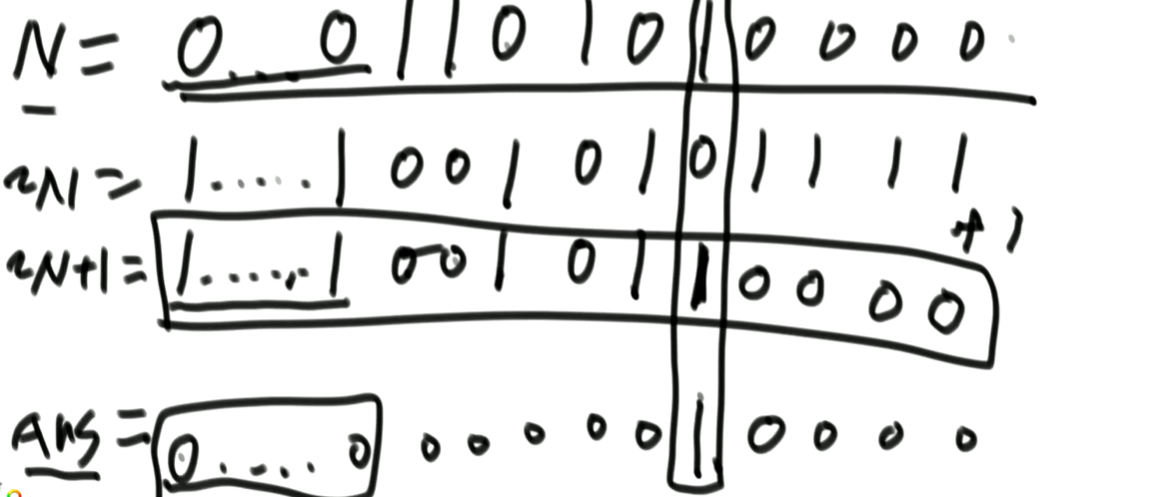 N = 0...0 1 1 0 1 0 1 0 0 0 0
~N = 1.....1 0 0 1 0 1 0 1 1 1 1
+1
~N+1 = 1......1 0 0 1 0 1 1 0 0 0 0
Ans = 0.....0 0 0 0 0 0 1 0 0 0 0